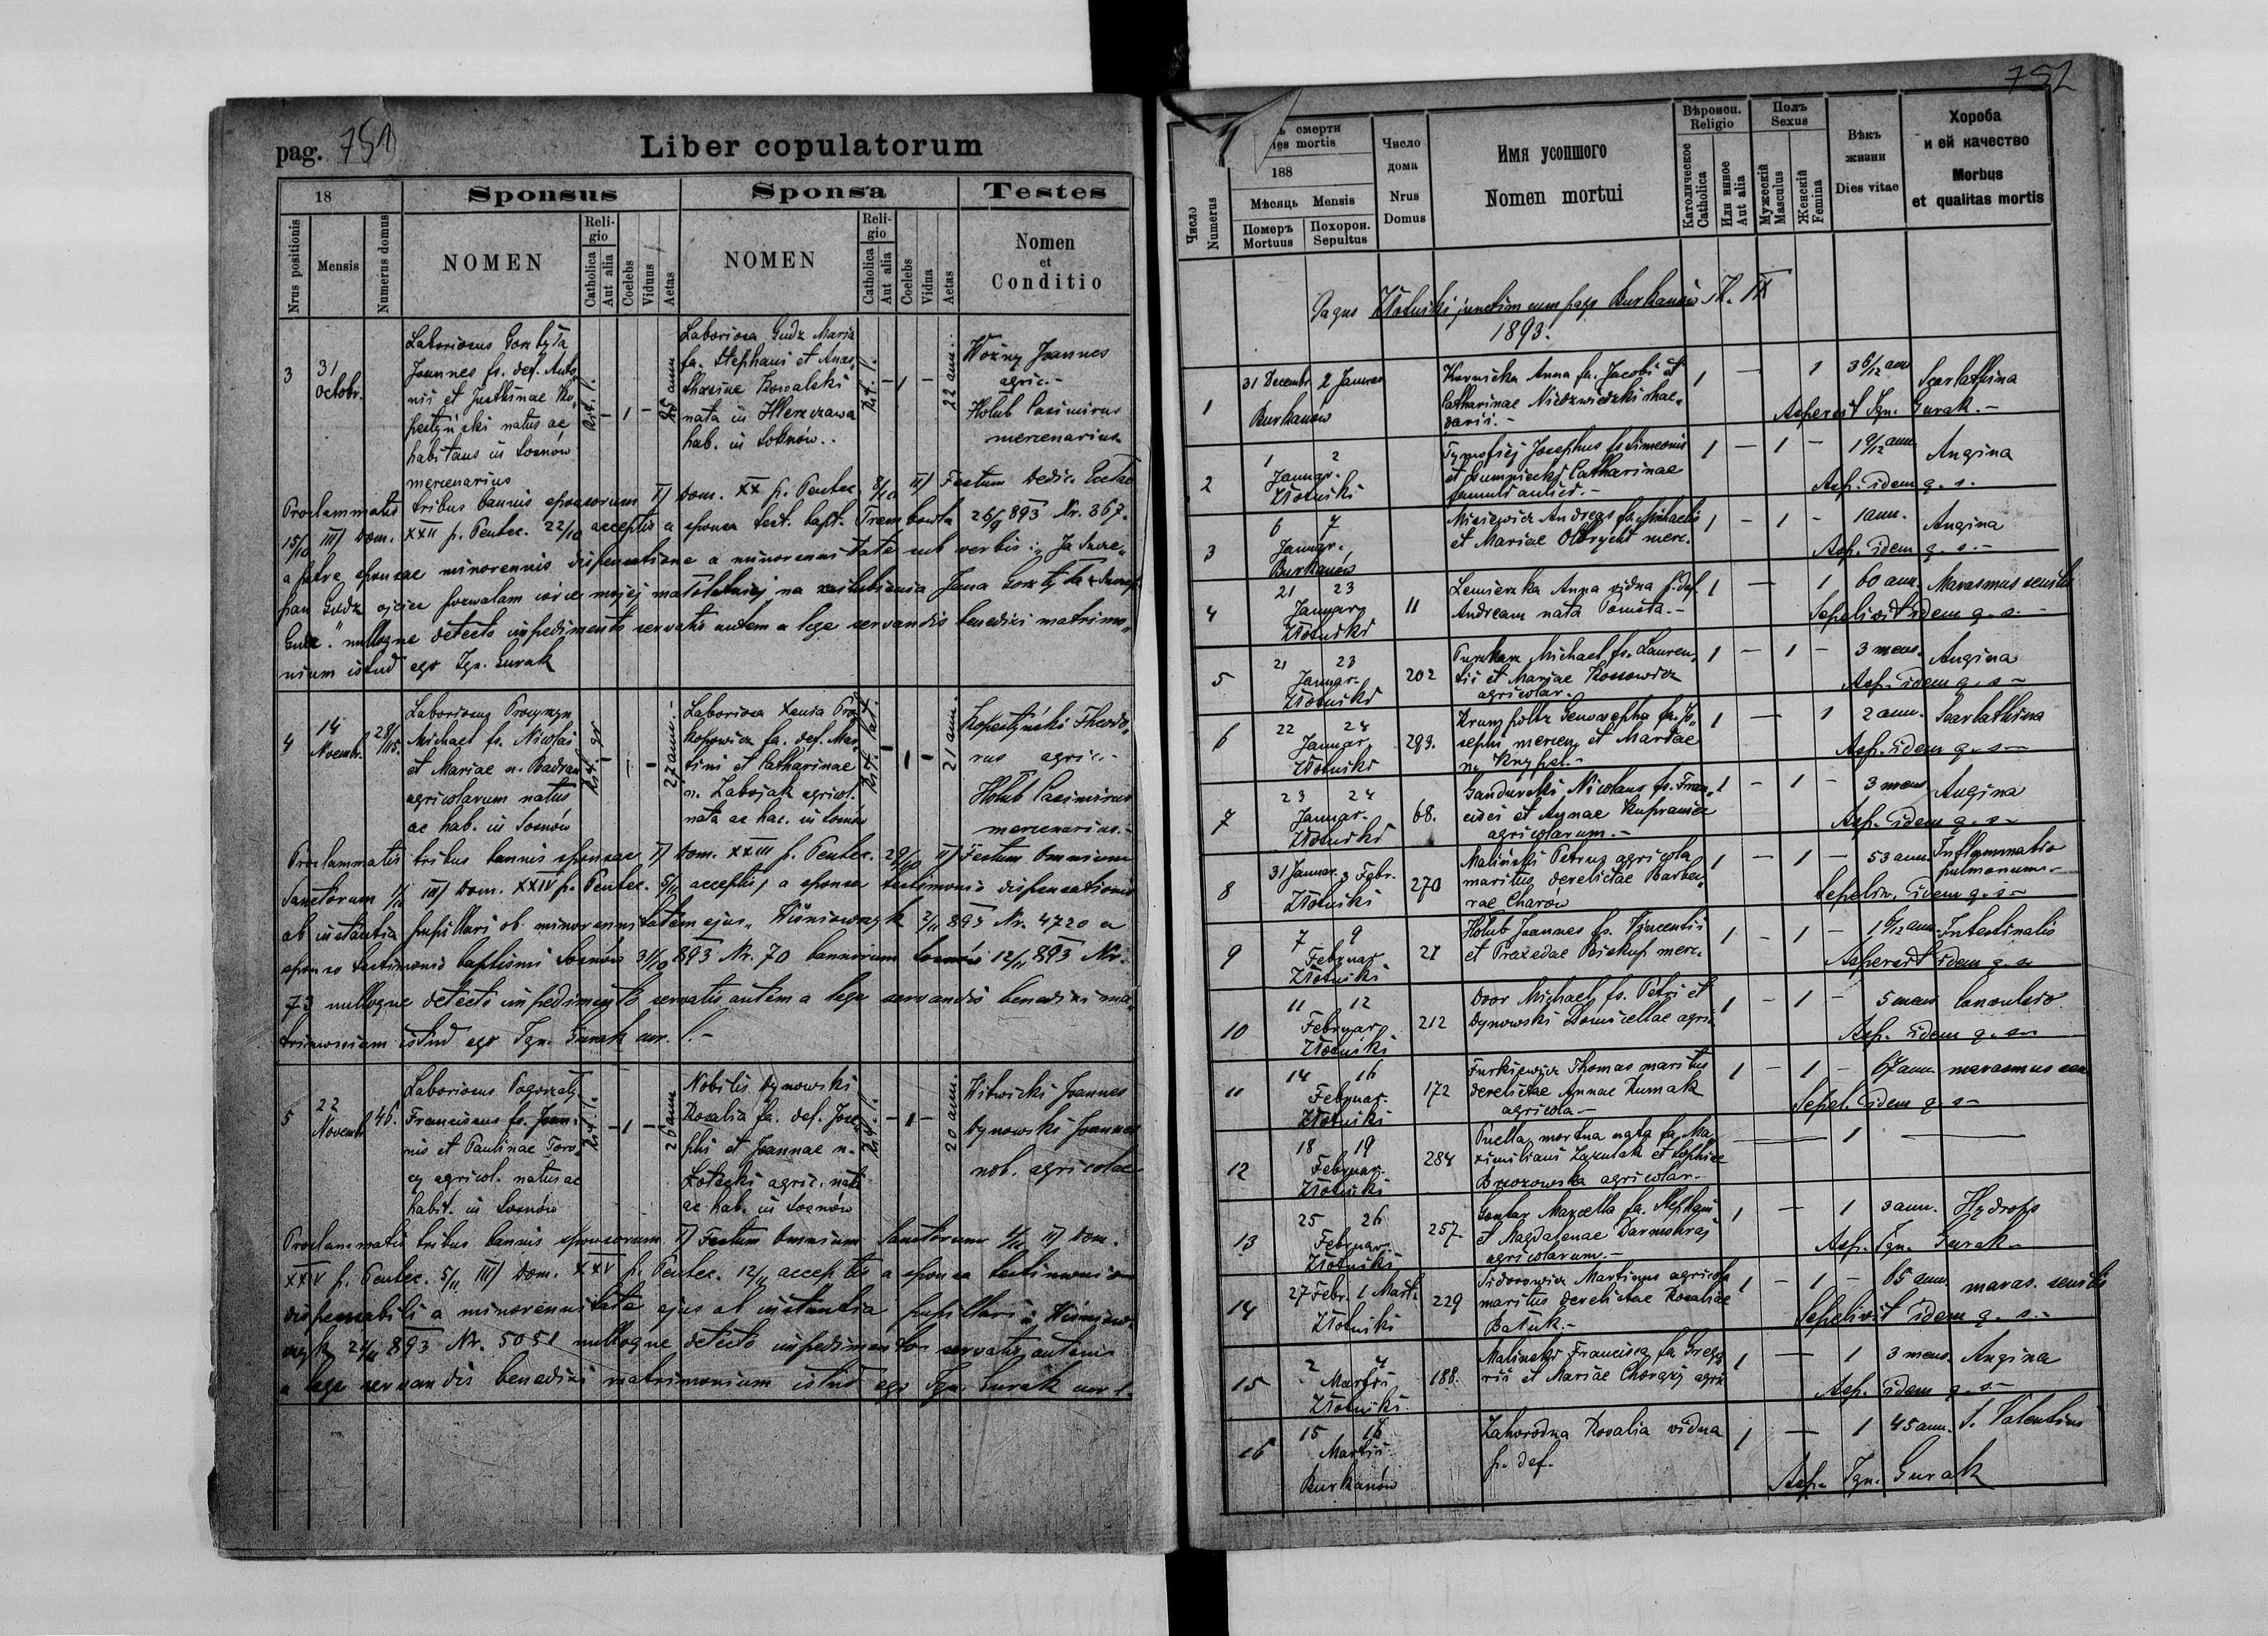 pag. 751
Liber copulatorum
18
Sponsus
Sponsa
Testes
Nrus positionis
Mensis
Numerus domus
NOMEN
Religio
Catholica
Aut alia
Coelebs
Viduus
Aetas
NOMEN
Religio
Catholica
Aut alia
Coelebs
Vidua
Aetas
Nomen
et
Conditio
3
31
Octobr.
Laboriosus
Joannes fs. def. Anto„
nii et Justhinae Ko„
pestyński natus ac
habitans in Sosnów
mercenarius
Rit. l.
1
25 ann
Laboriosa Gudz Maria
fa. Stephani et Anas„
thasiae Kowalski
nata in
hab. in Sosnów..
Rit. l.
1
22 ann.
Woźny Joannes
agric.-
Hołub Casimirus
mercenarius
Proclammatis tribus bannis sponsorum I) Dom. XX p. Pentec. 8/10 II) Festum Dedic. Eccl
15/10 III) Dom. XXII p. Pentec. 22/10 acceptis a sponsa test. bapt. Trembowla 26/9 893 Nr. 367.
a patre sponsae minorennis dispensatione a minorennitate sub verbis: „Ja Szcze„
pan Gudz ojciec pozwalam córce mojej małoletniej na zaślubienia Jana
Gudz." nulloque detecto impedimento servatis autem a lege servandis benedixi matrimo„
nium istud ego Ign. Gurak
4
14
Novembr.
28/115.
Laboriosus
Michael fs. Nicolai
et Mariae n.
agricolarum natus
ac hab. in Sosnów
Rit. gr
1
27 ann.
Laboriosa Xenia Pro„
kopowicz fa. def. Mar„
tini et Catharinae
n. agricol.
nata ac hab. in Sosnów
Rit. lat.
1
21 ann
Kopestyński Theodo„
rus agric.-
Hołub Casimirus
mercenarius.-
Proclammatis tribus bannis sponsae I) Dom. XXIII p. Pentec. 29/10 II) Festum Omnium
Sanctorum 1/11 III) Dom. XXIV p. Pentec. 5/11 acceptis, a sponsa testimonio dispensationis
ab instantia pupillari ob minorennitatem ejus „Wiśniowczyk 2/11 893 Nr. 4720 a
sponso testimonio baptismi Sosnów 31/10 893 Nr. 70 bannorum Sosnów 12/11 893 Nr.
73 nulloque detecto impedimento servatis autem a lege servandis benedixi ma„
trimonium istud ego Ign. Gurak cur. l.-
5
22
Novembr
46.
Laboriosus
Franciscus fs. Joan„
nis et Paulinae
agricol. natus ac
habit. in Sosnów
Rit. l.
1
26 ann
Nobilis Dynowski
Rosalia fa. def. Jose„
phi et Joannae n.
agric. nata
ac hab. in Sosnów
Rit. l.
1
20 ann.
Witwicki Joannes
Dynowski Joannes
nob. agricolae
Proclammatis tribus bannis sponsorum I) Festum Omnium Sanctorum 1/11 II) Dom.
XXIV p. Pentec. 5/11 III) Dom. XXV p. Pentec. 12/11 acceptis a sponsa testimonio
dispensabili a minorennitate ejus ab instantia pupillari „Wiśniow„
czyk 21/11 893 Nr. 5051 nulloque detecto impedimento servatis autem
a lege servandis benedixi matrimonium istud ego Ign. Gurak cur l.
752
Число
Numerus
смерти
mortis
188
Мѣсяць Mensis
Померъ
Mortuus
Похорон.
Sepultus
Число
дома
Nrus
Domus
Имя усопшого
Nomen mortui
Вѣроисп.
Religio
Католическое
Catholica
Или инное
Aut alia
Полъ
Sexus
Мужескій
Masculus
Женскій
Femina
Вѣкъ
жизни
Dies vitae
Хороба
и ей качество
Morbus
et qualitas mortis
Pagus Złotniki junctim cum pago Burkanów
1893.
1
31 Decembr 2 Januar
Burkanów
Anna fa. Jacobi et
Catharinae Niedzwiedzki
1 - 1
3 6/12 ann
Scarlathina
Aspersit Ign. Gurak.-
2
1 2
Januar.
Złotniki
Josephus fs Simeonis
et Catharinae
1 - 1 -
1 9/12 ann
Angina
Asp. idem q. s.
3
6 7
Januar.
Burkanów
Misiewicz Andreas fs. Michaelis
et Mariae Olbrycht merc.
1 - 1 -
1 ann.
Angina
Asp. idem q. s.-
4
21 23
Januar
Złotniki
11
Anna vidua p. def.
Andream nata
1 - 1
60 ann.
Marasmus senilis
Sepelivit idem q. s.-
5
21 23
Januar.
Złotniki
202
Michael fs. Lauren„
tii et Mariae Kossowicz
agricolar.
1 - 1 -
3 mens.
Angina
Asp. idem q. s-
6
22 24
Januar
Złotniki
293.
Genowepha fa. Jo„
sephi mercen. et Mariae
n.
1 - 1
2 ann.
Scarlathina
Asp. idem q. s.-
7
23 24
Januar.
Złotniki
68.
Gandurski Nicolaus fs. Fran„
cisci et Annae
agricolarum.-
1 - 1 -
3 mens
Angina
Asp. idem q. s.-
8
31 Januar. 3 Febr.
Złotniki
270
Maliński Petrus agricola
maritus derelictae Barba„
rae Charów
1 - 1 -
53 ann.
Inflammatio
pulmonum-
Sepeliv. idem q. s.-
9
7 9
Februar
Złotniki
21
Hołub Joannes fs. Vincentii
et Praxedae Biskup merc.
1 - 1 -
1 6/12 ann.
Intestinalis
Aspersit idem q. s
10
11 12
Februar
Złotniki
212
Michael fs. Petri et
Dynowski Domicellae agri
1 - 1 -
5 mens
Convulsio
Asp. idem q. s-
11
14 16
Februar.
Złotniki
172
Jurkiewicz Thomas maritus
derelictae Annae Rumak
agricola-
1 - 1 -
67 ann.
marasmus sen
Sepel. idem q. s-
12
18 19
Februar.
Złotniki
284
Puella mortua nata fa. Ma„
ximiliani et Sophiae
Brzozowska agricolar.-
1
13
25 26
Februar.
Złotniki
257.
Gontar Marcella fa. Stephani
et Magdalenae Darmohraj
agricolarum.-
1 - 1
3 ann.
Hydrops
Asp. Ign. Gurak-
14
27 Febr. 1 Marti
Złotniki
229
Sidorowicz Martinus agricola
maritus derelictae Rosaliae
Batiuk.-
1 - 1 -
65 ann.
maras. senilis
Sepelivit idem q. s.-
15
2 4
Martii
Złotniki
188.
Malinski Francisca fa Grego„
rii et Mariae Chorąży agric
1 - 1
3 mens.
Angina
Asp. idem q. s-
16
15 16
Martii
Burkanów
Zahorodna Rosalia vidua
p. def.
1 - 1
45 ann.
S. Valentini
Asp. Ign. Gurak